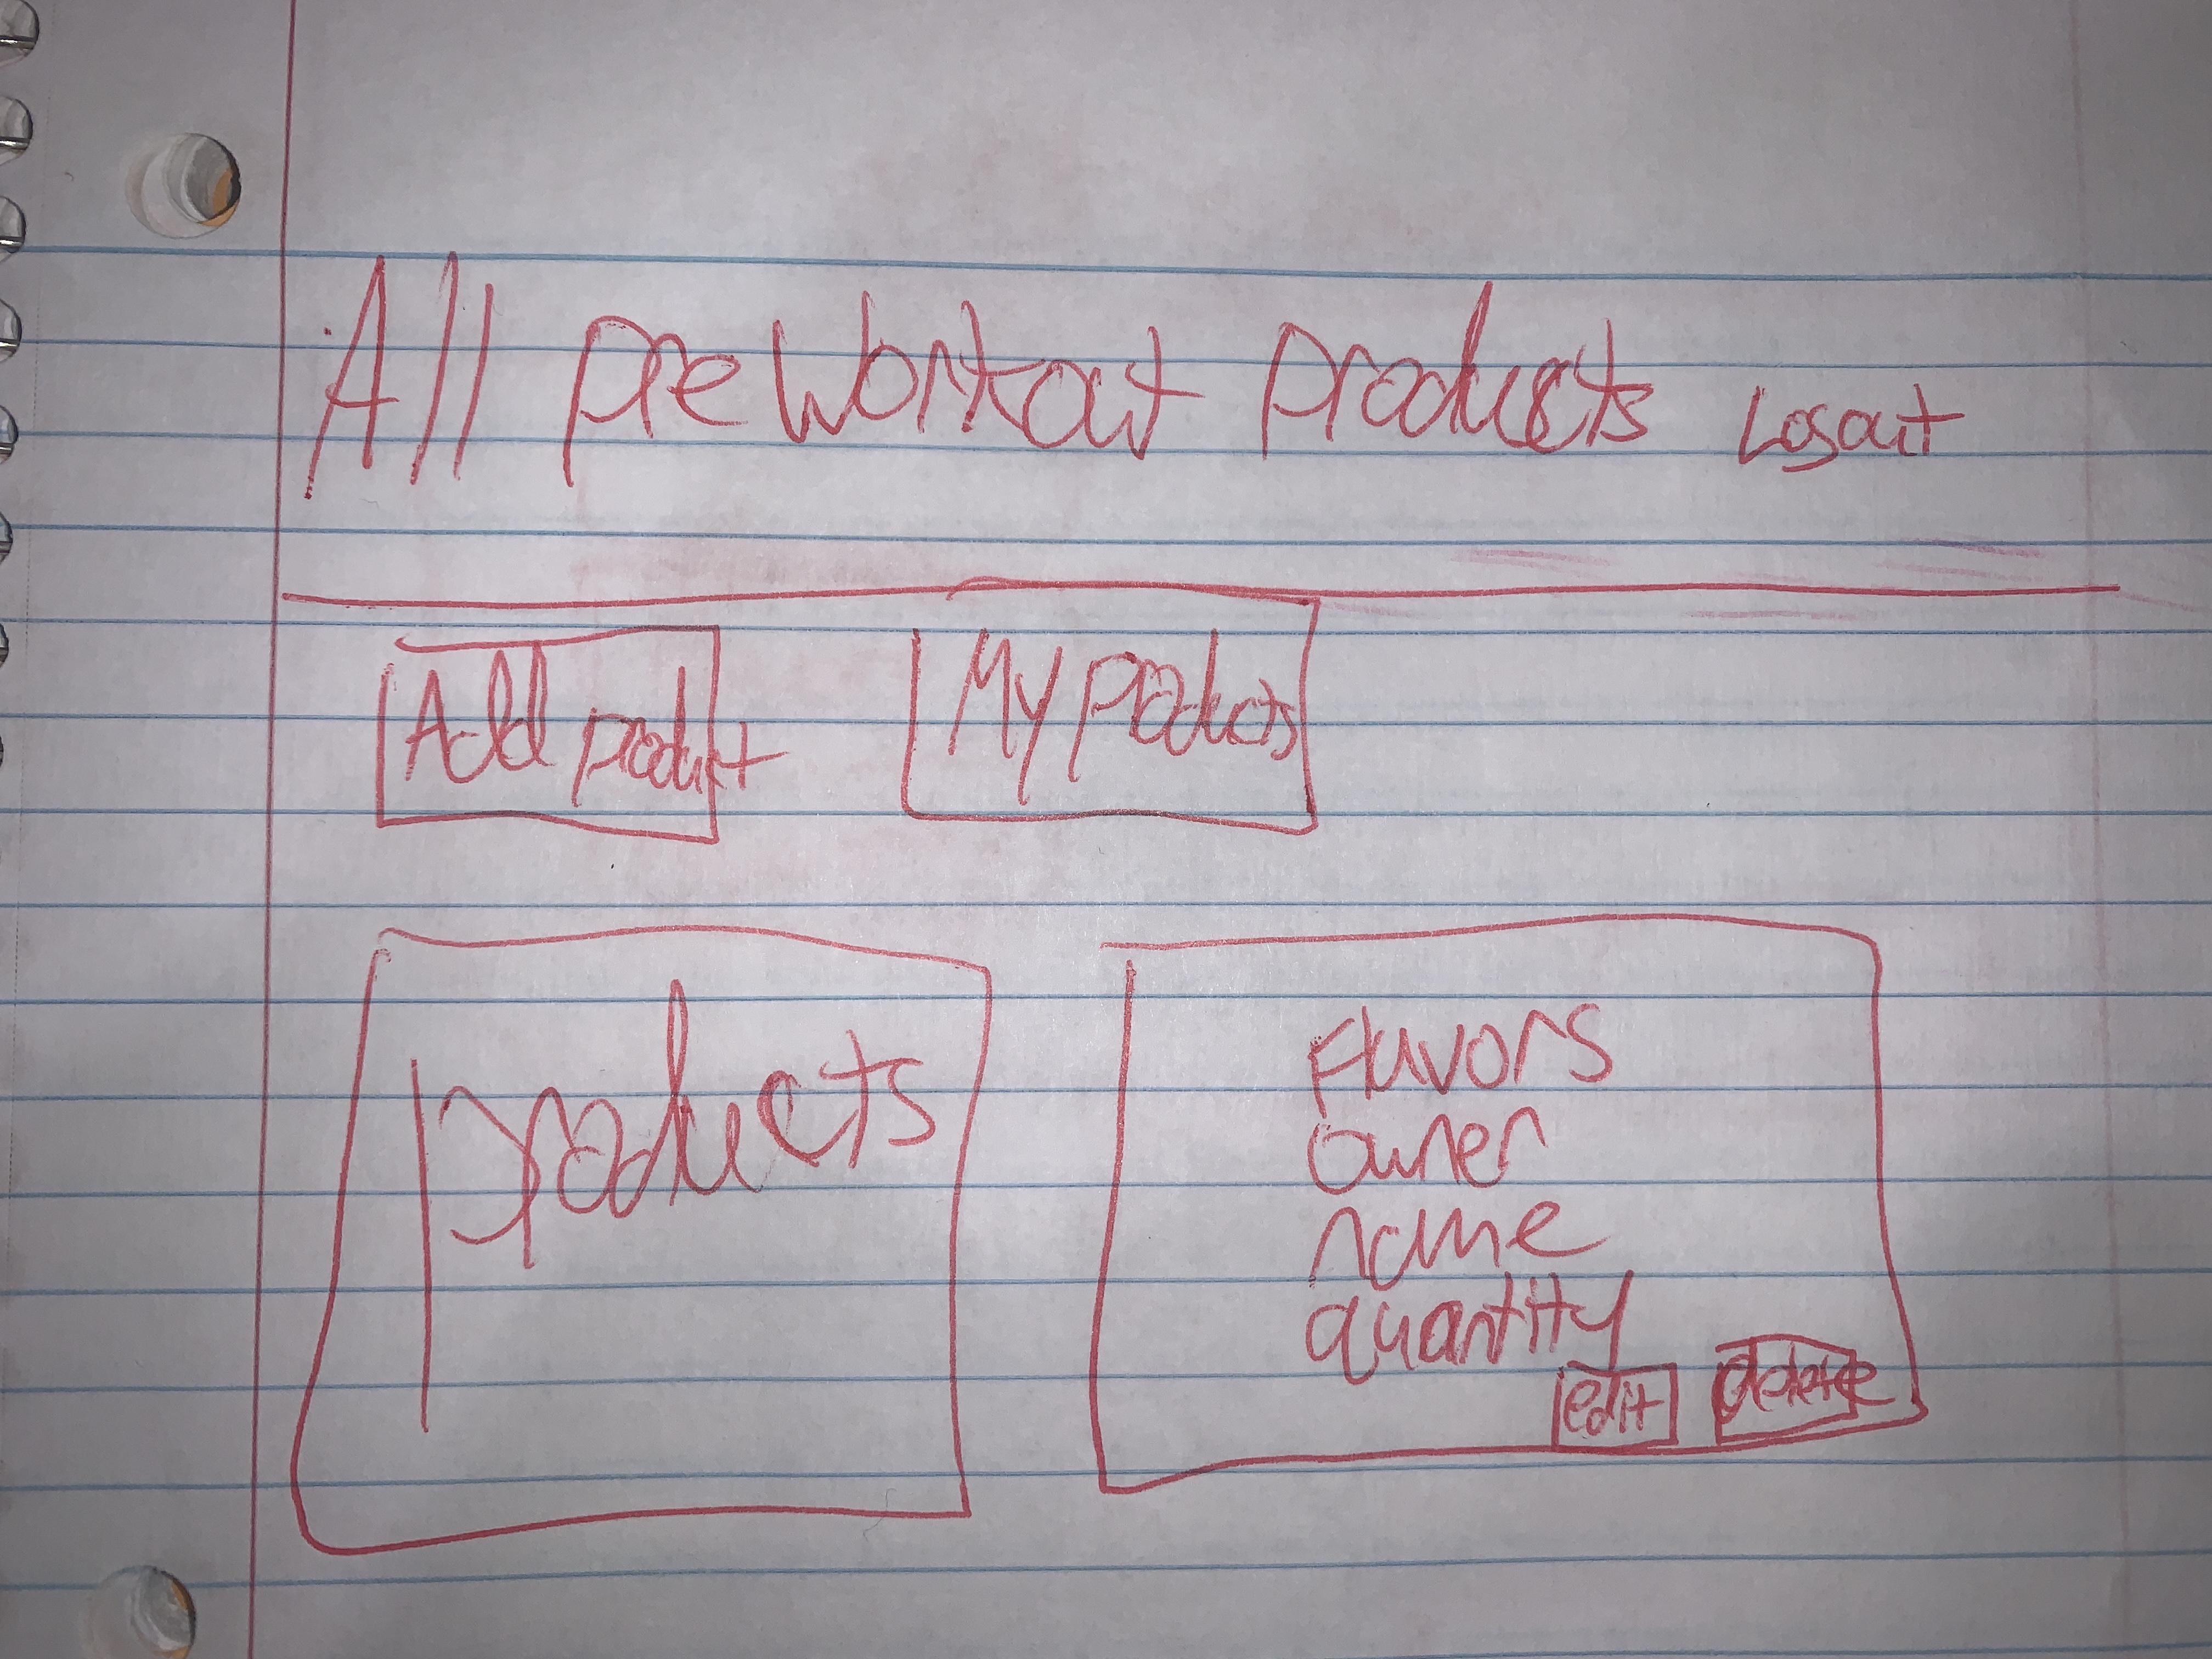 All preworkout products Logout
Add product
My products
products
Flavors
owner
name
quantity
edit
delete